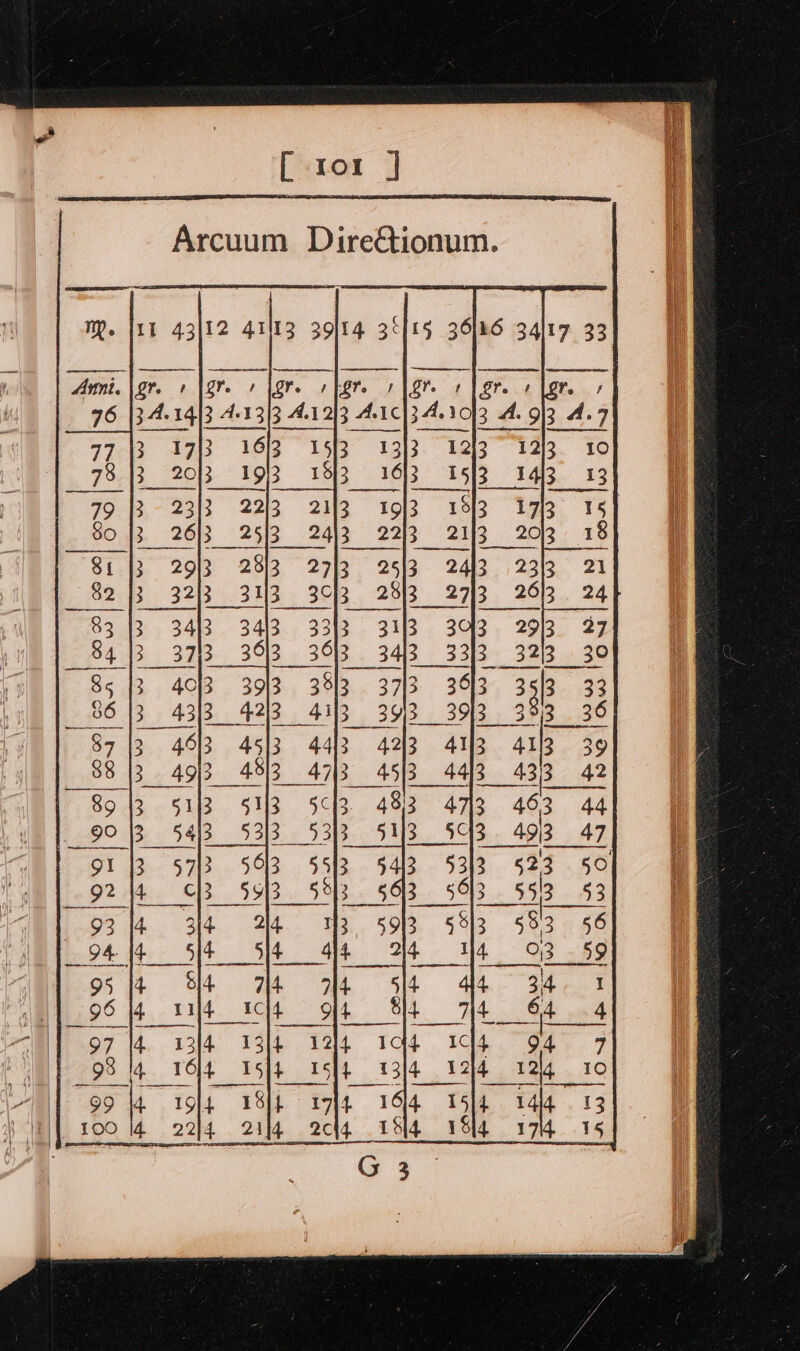 [ 101 ]
Arcuum Directionum.
♍. 11 43 12 41 13 39 14 38 15 36 16 34 17 33
Anni. gr. ′ gr. ′ gr. ′ gr. ′ gr. ′ gr. ′ gr. ′
76 3A.14 3 A.13 3 A.12 3 A.10 3 A.10 3 A. 9 3 A.7
77 3 17 3 16 3 15 3 13 3 12 3 12 3 10
78 3 20 3 19 3 18 3 16 3 15 3 14 3 13
79 3 23 3 22 3 21 3 19 3 18 3 17 3 15
80 3 26 3 25 3 24 3 22 3 21 3 20 3 18
81 3 29 3 28 3 27 3 25 3 24 3 23 3 21
82 3 32 3 31 3 30 3 28 3 27 3 26 3 24
83 3 34 3 34 3 33 3 31 3 30 3 29 3 27
84 3 37 3 36 3 36 3 34 3 33 3 32 3 30
85 3 40 3 39 3 38 3 37 3 36 3 35 3 33
86 3 43 3 42 3 41 3 39 3 39 3 38 3 36
87 3 46 3 45 3 44 3 42 3 41 3 41 3 39
88 3 49 3 48 3 47 3 45 3 44 3 43 3 42
89 3 51 3 51 3 50 3 48 3 47 3 46 3 44
90 3 54 3 53 3 53 3 51 3 50 3 49 3 47
91 3 57 3 56 3 55 3 54 3 53 3 52 3 50
92 4 0 3 59 3 58 3 56 3 56 3 55 3 53
93 4 3 4 2 4 1 3 59 3 58 3 58 3 56
94 4 5 4 5 4 4 4 2 4 1 4 0 3 59
95 4 8 4 7 4 7 4 5 4 4 4 3 4 1
96 4 11 4 10 4 9 4 8 4 7 4 6 4 4
97 4 13 4 13 4 12 4 10 4 10 4 9 4 7
98 4 16 4 15 4 15 4 13 4 12 4 12 4 10
99 4 19 4 18 4 17 4 16 4 15 4 14 4 13
100 4 22 4 21 4 20 4 18 4 18 4 17 4 15
G 3